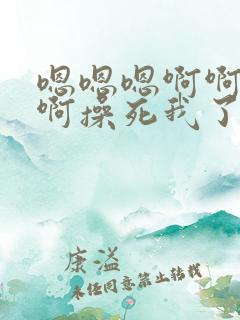 嗯嗯嗯啊啊
啊操死我了
康溢
未经同意禁止转载